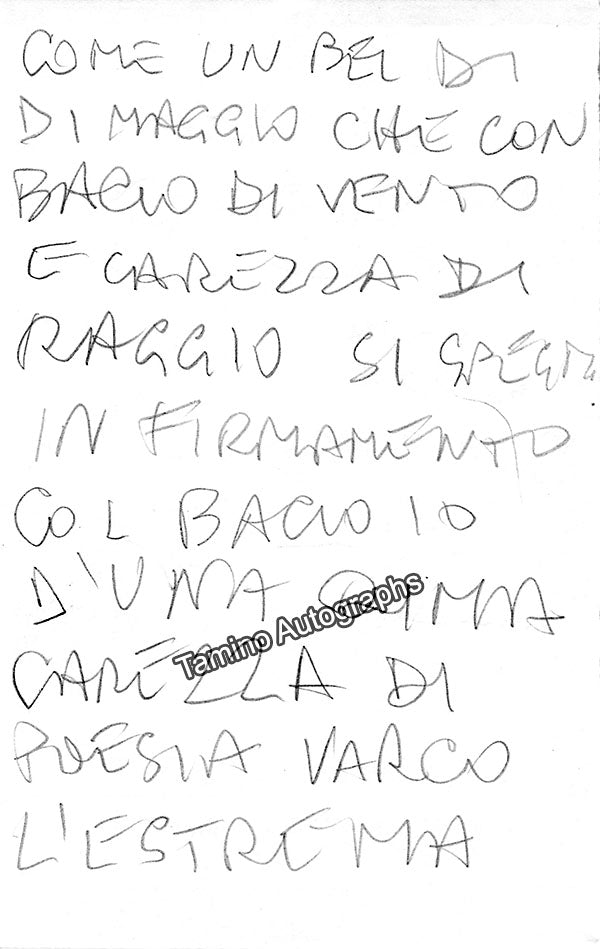 COME UN BEL DI
DI MAGGIO CHE CON
BACIO DI VENTO
E CAREZZA DI
RAGGIO SI SPEGNE
IN FIRMAMENTO
COL BACIO IO
D'UNA RIMA
CAREZZA DI
POESIA VARCO
L'ESTREMA
Tamino Autographs